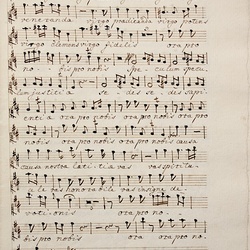 veneranda virgo praedicanda virgo potens
virgo clemens virgo fidelis ora pro
nobis pro nobis speculum specu-
lum justitiae sedes sedes sapi-
entiae ora pro nobis ora pro nobis ora pro
nobis ora pro nobis ora pro nobis causa
causa nostrae laetitiae vas vas spiritu-
a le vas honorabile vas insigne de-
votionis ora pro no-
bis ora pro nobis ora pro no-